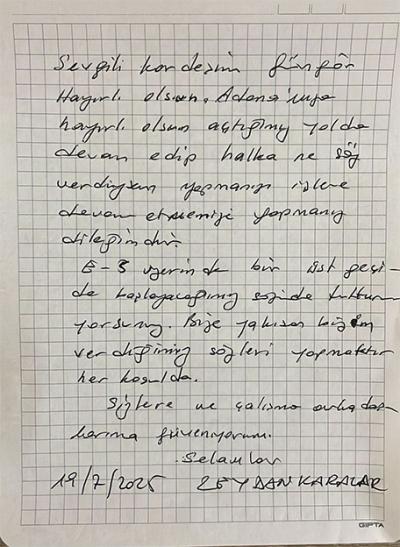 Sevgili kardeşim Güngör
Hayırlı olsun. Adana'mıza
hayırlı olsun açtığınız yolda
devam edip halka ne söz
verdiysen yapmanızı işlere
devam etmenizi yapmanız
dileğimdir.
E-5 üzerinde bir üst geçi-
de başlayacağınız sözünde tutun
yorsunuz. Bize yakışan bizim
verdiğimiz sözleri yapmaktır
her koşulda.
Sizlere ve çalışma arkadaş-
larıma güveniyorum.
Selamlar
19/7/2025 ZEYDAN KARALAR
GIPTA